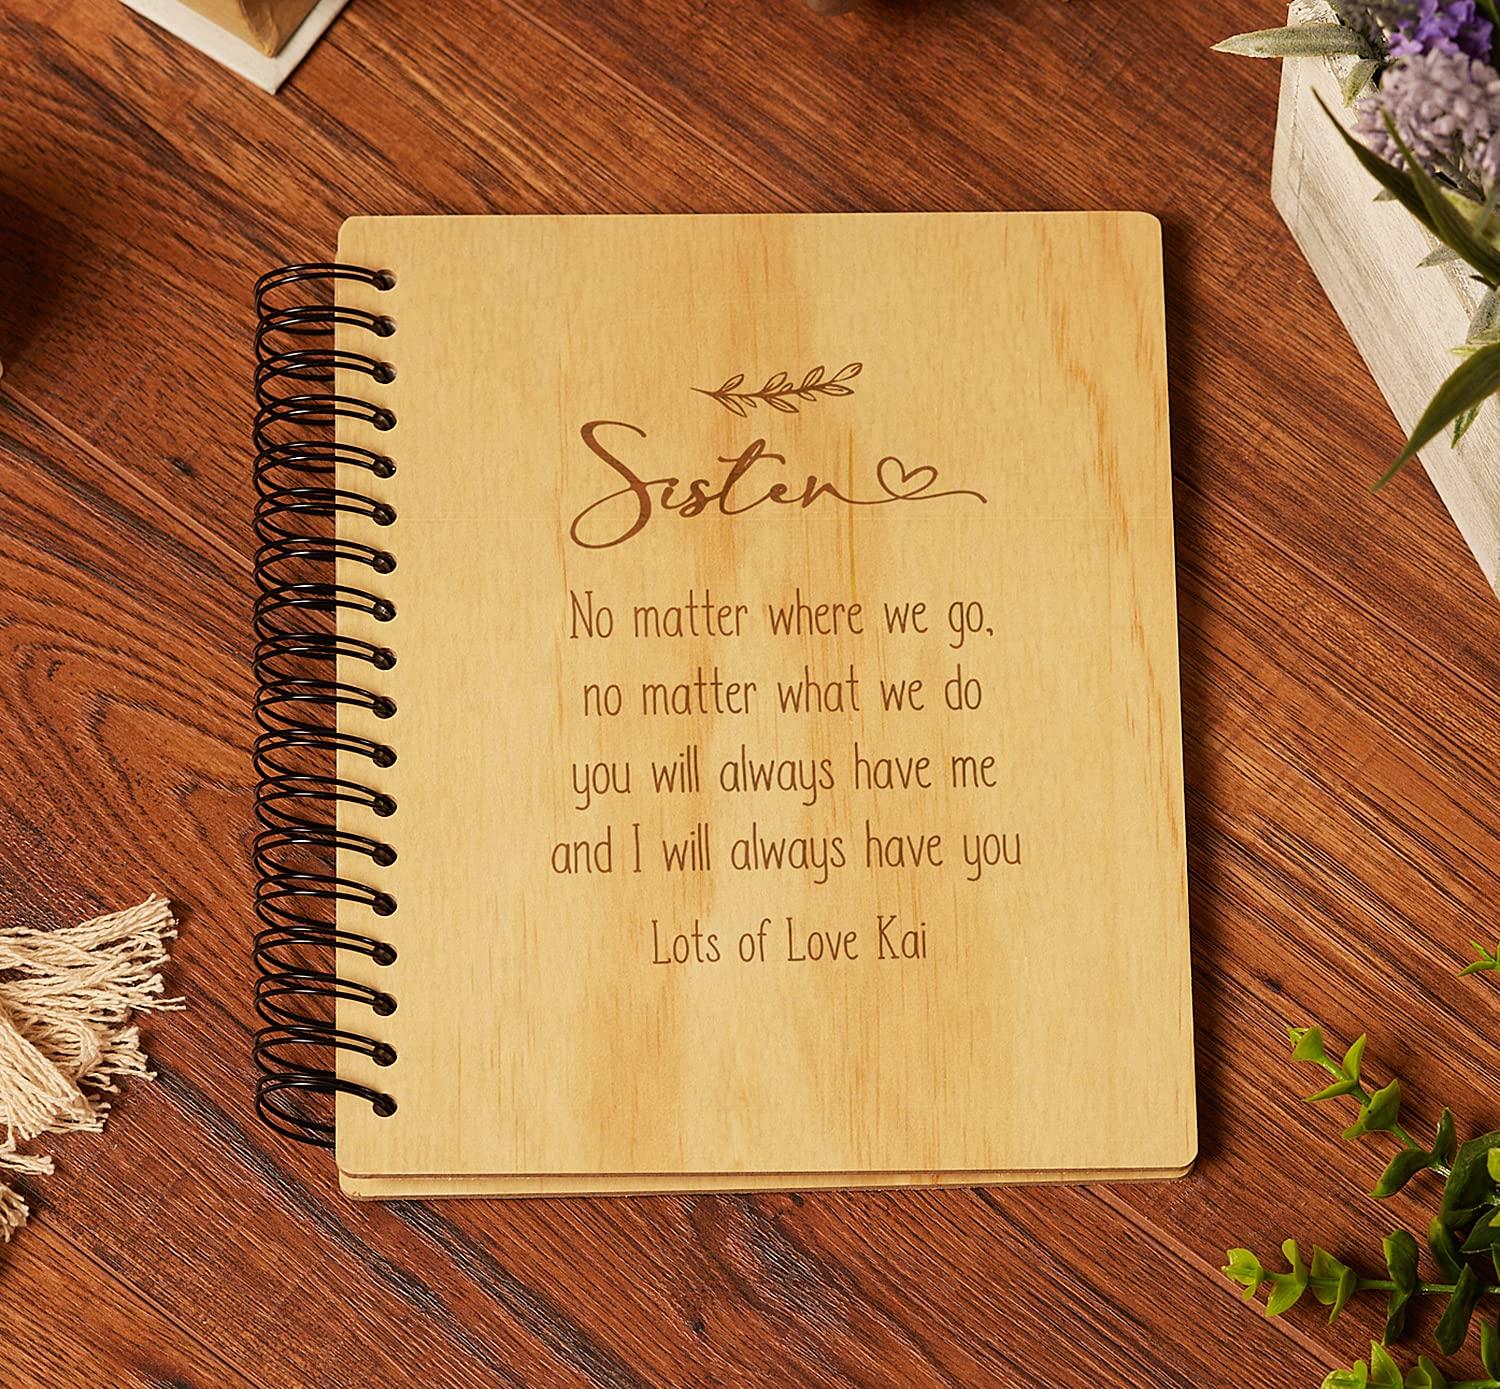 Sister
No matter where we go,
no matter what we do
you will always have me
and I will always have you
Lots of Love Kai